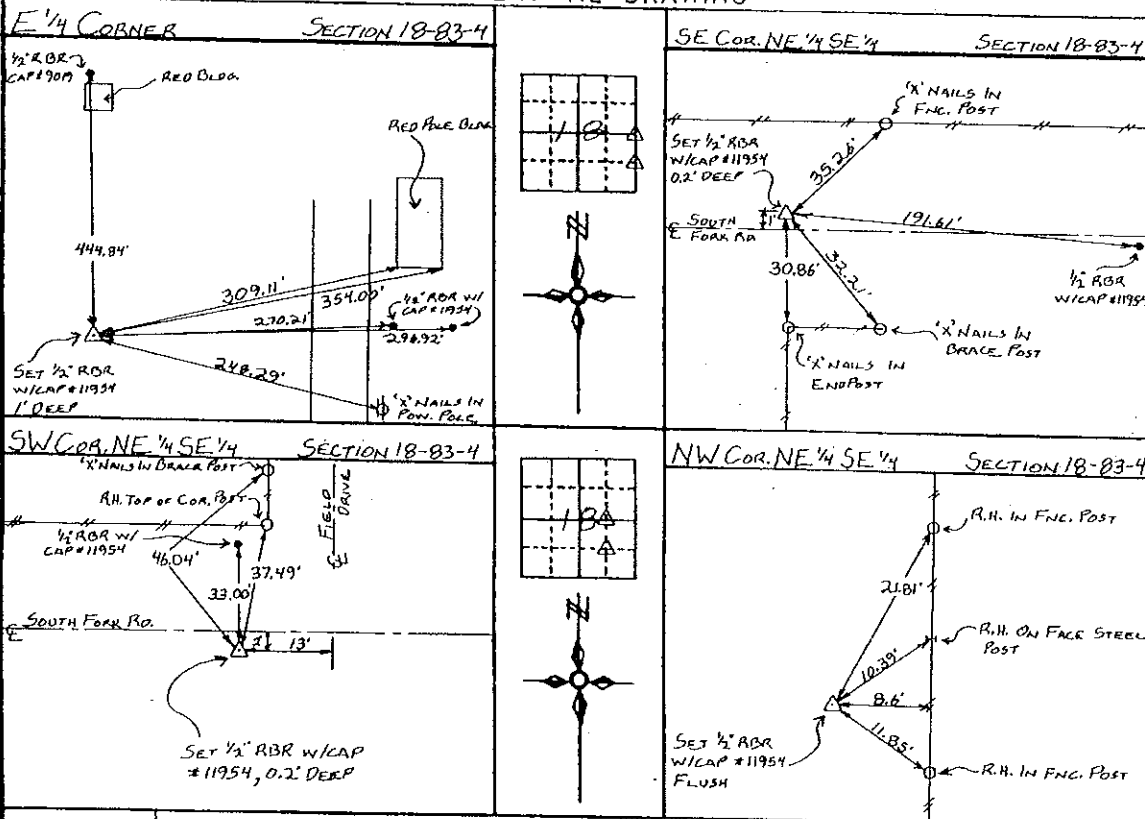 E 1/4 CORNER
SECTION 18-83-4
1/2" RBR
CAP #9019
RED BLDG.
RED POLE BLDG.
444.84'
309.11'
354.00'
1/2" RBR W/
CAP #11954
270.21'
296.92'
248.29'
SET 1/2" RBR
W/CAP #11954
1' DEEP
'X' NAILS IN
POW. POLE
18
N
SE COR. NE 1/4 SE 1/4
SECTION 18-83-4
'X' NAILS IN
FNC. POST
SET 1/2" RBR
W/CAP #11954
0.2' DEEP
35.26'
191.61'
1'
℄ SOUTH
FORK RD
30.86'
32.21'
1/2" RBR
W/CAP #1195
'X' NAILS IN
BRACE POST
'X' NAILS IN
END POST
SW COR. NE 1/4 SE 1/4
SECTION 18-83-4
'X' NAILS IN BRACE POST
R.H. TOP OF COR. POST
℄ FIELD
DRIVE
1/2" RBR W/
CAP #11954
46.04'
37.49'
33.00'
℄ SOUTH FORK RD.
13'
SET 1/2" RBR W/CAP
#11954, 0.2' DEEP
18
N
NW COR. NE 1/4 SE 1/4
SECTION 18-83-4
R.H. IN FNC. POST
21.81'
R.H. ON FACE STEEL
POST
10.39'
8.6'
11.85'
SET 1/2" RBR
W/CAP #11954
FLUSH
R.H. IN FNC. POST